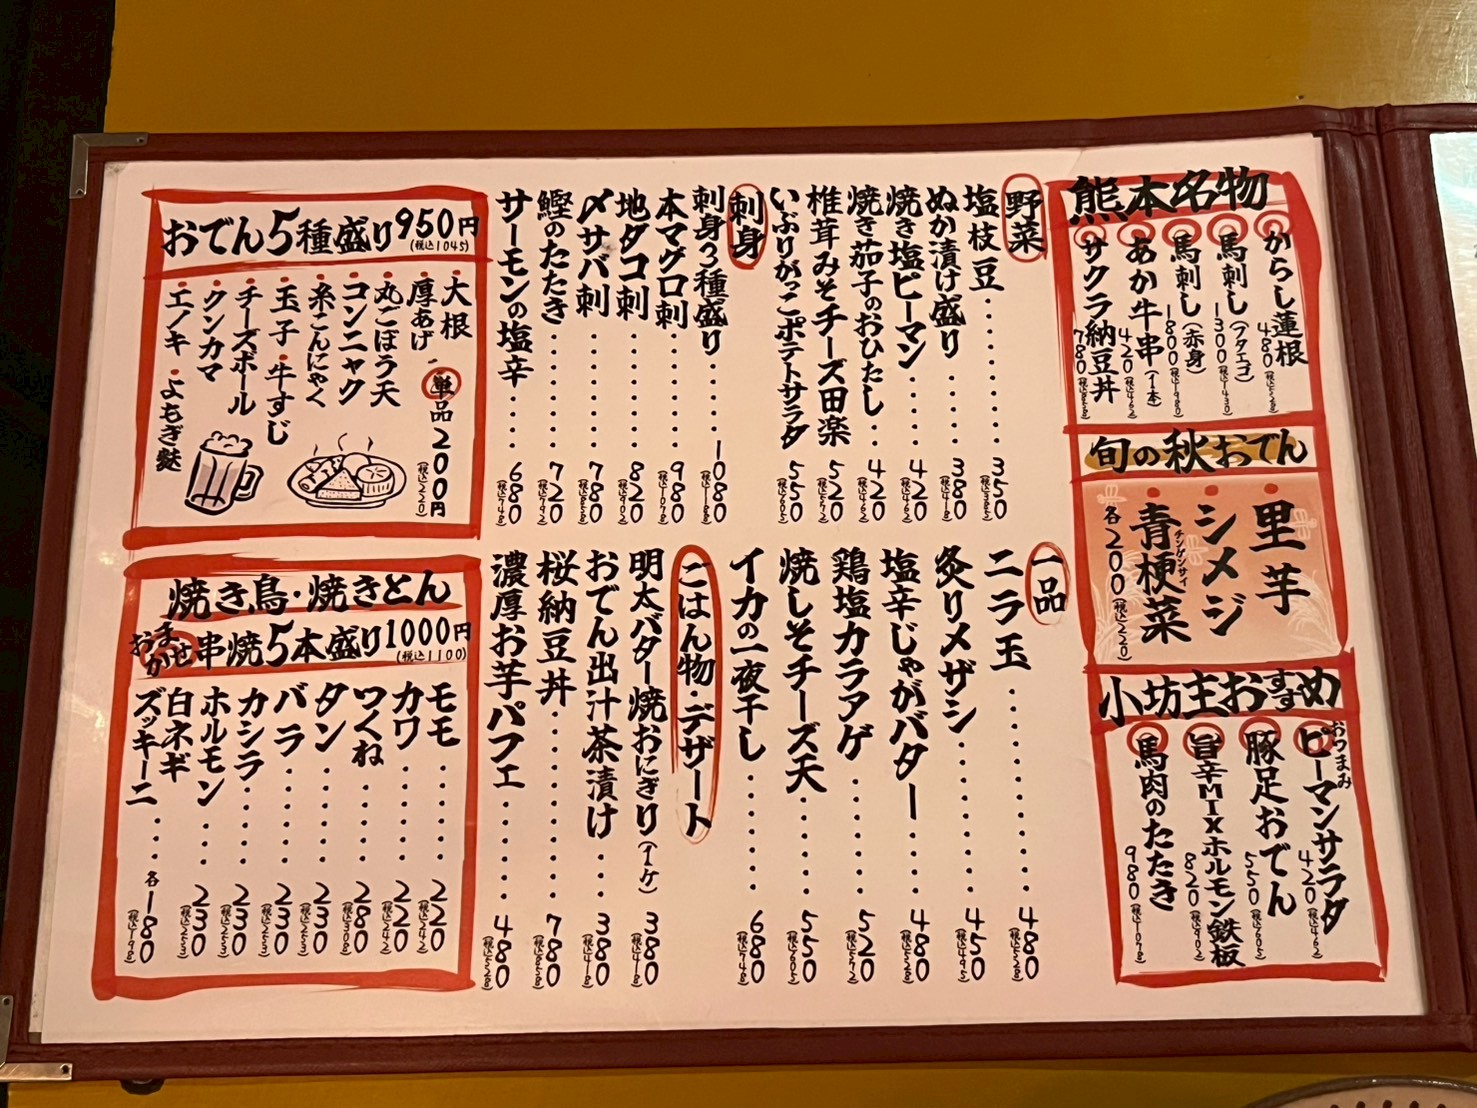 熊本名物
からし蓮根 480(税込528)
馬刺し(フタエゴ) 1300(税込1430)
馬刺し(赤身) 1800(税込1980)
あか牛串(1本) 420(税込462)
サクラ納豆丼 780(税込858)
旬の秋おでん
・里芋
・シメジ
・青梗菜 チンゲンサイ
各200(税込220)
小坊主おすすめ
おつまみピーマンサラダ 420(税込462)
豚足おでん 550(税込605)
旨辛MIXホルモン鉄板 820(税込902)
馬肉のたたき 980(税込1078)
野菜
塩枝豆 350(税込385)
ぬか漬け盛り 380(税込418)
焼き塩ピーマン 420(税込462)
焼き茄子のおひたし 420(税込462)
椎茸みそチーズ田楽 520(税込572)
いぶりがっこポテトサラダ 550(税込605)
刺身
刺身3種盛り 1080(税込1188)
本マグロ刺 980(税込1078)
地ダコ刺 820(税込902)
〆サバ刺 780(税込858)
鰹のたたき 720(税込792)
サーモンの塩辛 680(税込748)
一品
ニラ玉 480(税込528)
炙りメザシ 450(税込495)
塩辛じゃがバター 480(税込528)
鶏塩カラアゲ 520(税込572)
焼しそチーズ天 550(税込605)
イカの一夜干し 680(税込748)
ごはん物・デザート
明太バター焼おにぎり(1ケ) 380(税込418)
おでん出汁茶漬け 380(税込418)
桜納豆丼 780(税込858)
濃厚お芋パフェ 480(税込528)
おでん5種盛り950円
(税込1045)
・大根
・厚あげ
・丸ごぼう天
・コンニャク
・糸こんにゃく
・玉子 ・牛すじ
・チーズボール
・クンカマ
・エノキ ・よもぎ麩
単品200円
(税込220)
焼き鳥・焼きとん
おまかせ串焼5本盛り1000円
(税込1100)
モモ 220(税込242)
カワ 220(税込242)
つくね 280(税込308)
タン 230(税込253)
バラ 230(税込253)
カシラ 230(税込253)
ホルモン 230(税込253)
白ネギ
ズッキーニ 各180(税込198)